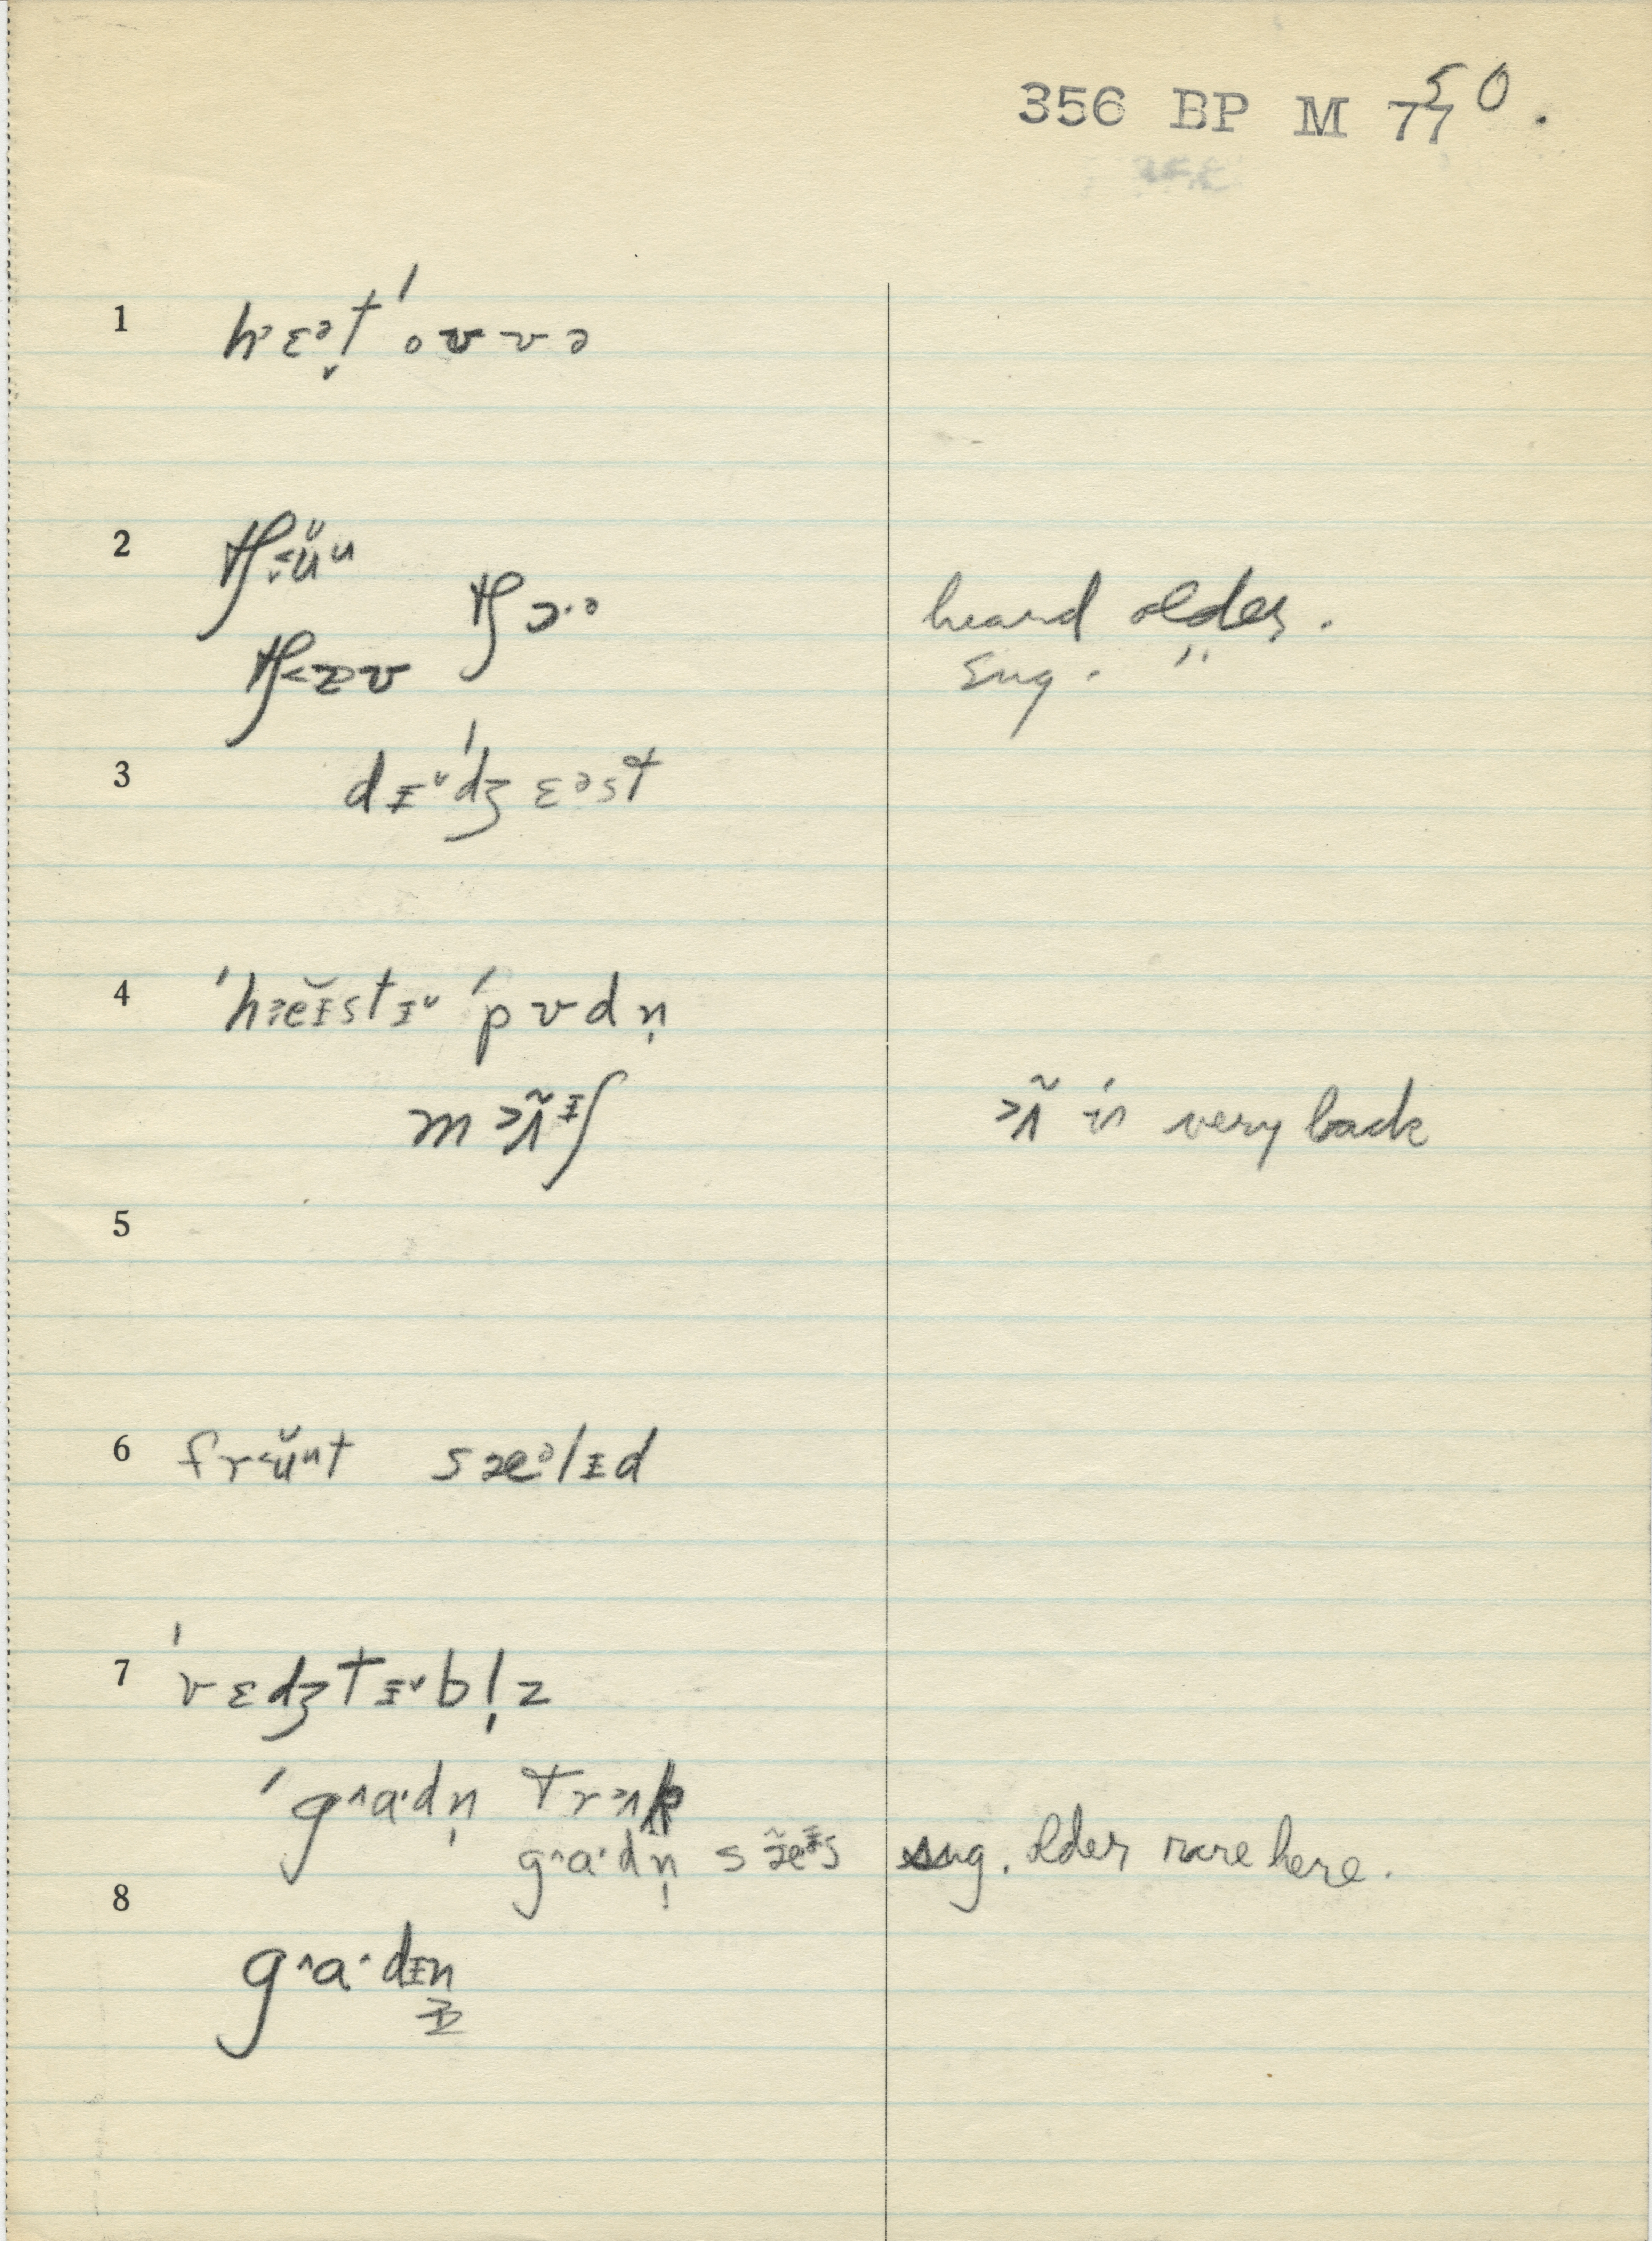 356 BP M 77 50.
1 hɛᵊt̬ ˈoʊvə
2 tʃ˂ŭᵘ
tʃɔ·ᵊ heard older.
tʃ˂ɒʊ sug. "
3 dɪ˅ˈdʒɛᵊst
4 ˈh˃eɪ̆stɪ˅ ˈpʊdn̩
m˃ʌ̃ᶤʃ ˃ʌ̃ is very back
5
6 fr˂ŭⁿt sæᵊlɪd
7 ˈvɛdʒtɪ˅bl̩z
ˈg^a·dn̩ tr˃ʌk
g^a·dn̩ sæ̃ᶤs sug. older rare here.
8
g^a·dɪn